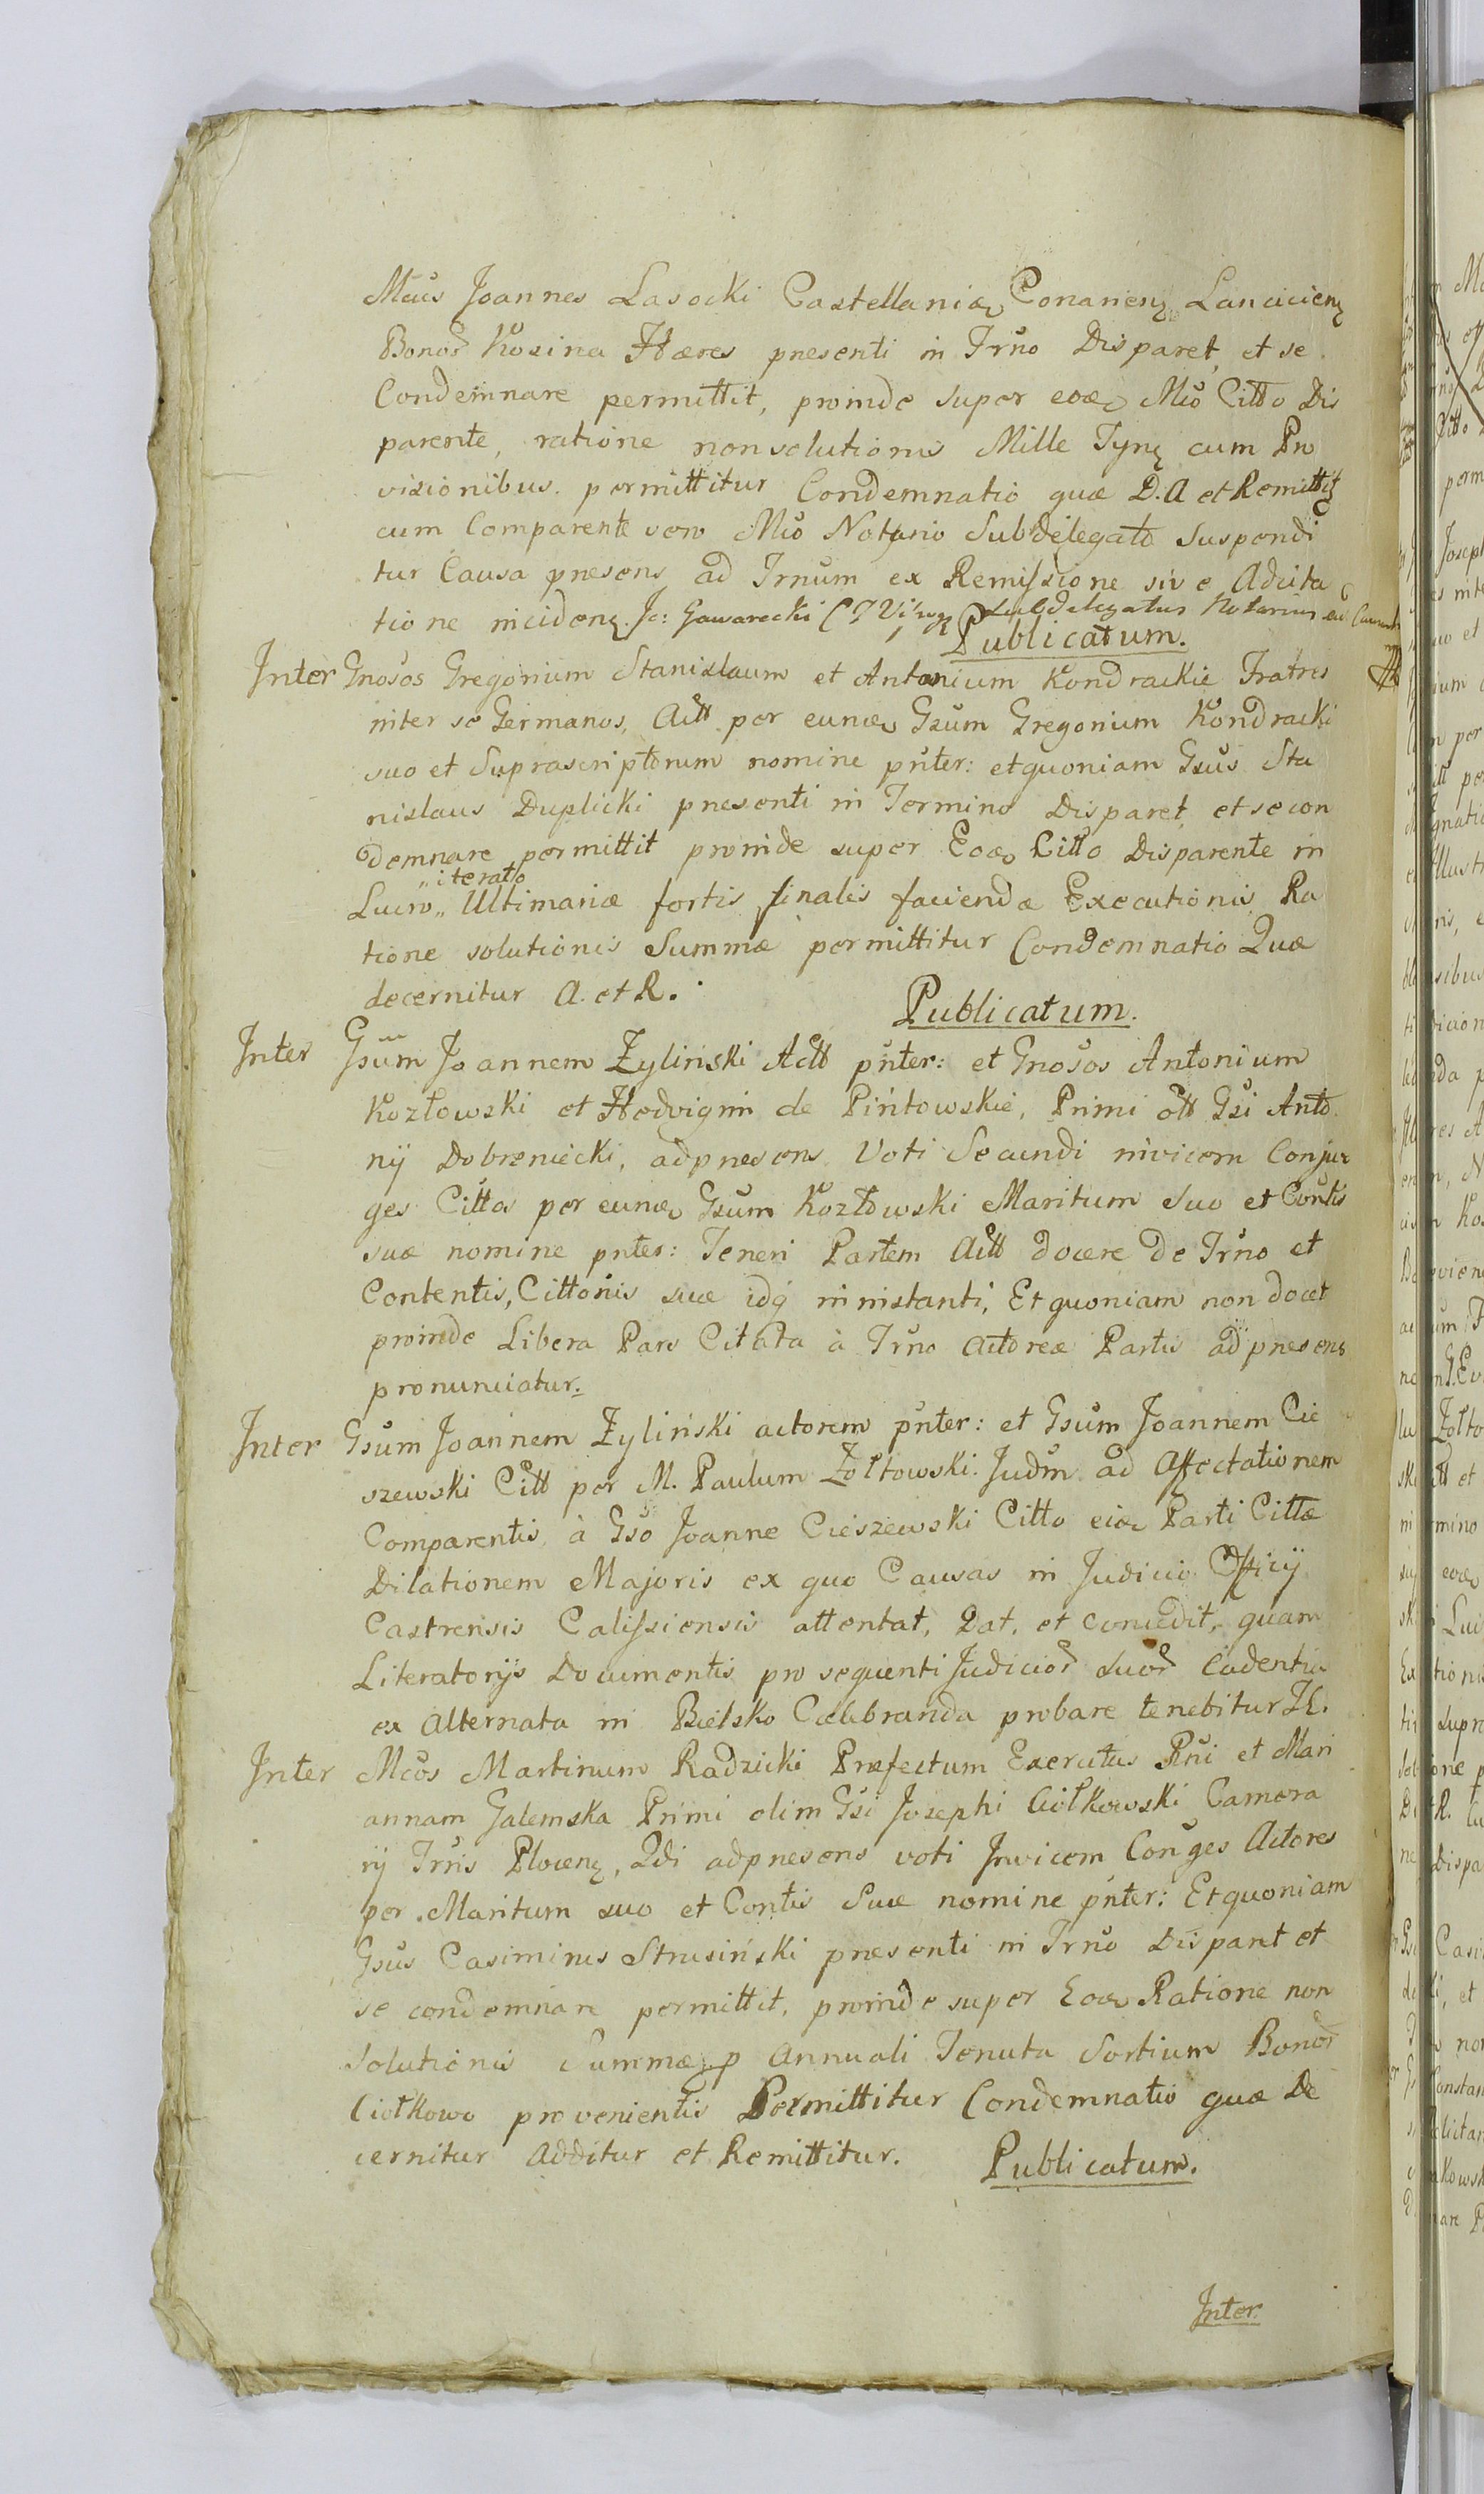 Mcus Joannes Lasocki Castellaniæ Conarienȩ Lanciciencȩ
Bonor̃ Kosina Hæres presenti in Trño Disparet, et se
Condemnare permittit, proinde super eoæ Mco Citto Dis
parente, ratione nonsolutionis Mille Tynȩ cum Pro
visionibus permittitur Condemnatio quæ D. A et Remittiȩ
cum Comparente vero Mco Notario Subdelegato Suspendi
tur Causa presens ad Trnum ex Remissione sive Adcita
tione incidenȩ. Jc: Gawarecki Subdelegatus Notarius
Publicatum.
Inter Gnosos Gregorium Stanislaum et Antonium Kondrackie Fratres
inter se Germanos, Actt per eunæ Gsum Gregorium Kondracki
suo et Suprascriptorum nomine pñter: et quoniam Gsus Sta
nislaus Duplicki presenti in Termino Disparet, et se con
demnare permittit proinde super Eoæ Citto Disparente in
„iterato
Lucro„ Ultimariæ fortis finalis faciendæ Executionis Ra
tione solutionis Summæ permittitur Condemnatio Quæ
decernitur A. et R.
Publicatum.
Inter Gsum Joannem Zyliński Actt pñter: et Gnosos Antonium
Kozłowski et Hedvigim de Pińtowskie, Primi ott Gsi Anto
nij Dobreniecki, adpresens Voti Secundi invicem Conju
ges Cittos per eunæ Gsum Kozłowski Maritum Suo et Contis
suæ nomine pnter: Teneri Partem Actt docere de Trño et
Contentis, Cittonis suæ idq̇ ininstanti, Et quoniam non docet
proinde Libera Pars Citata à Trno Actoreæ Partis adpresens
pronunciatur.
Inter Gsum Joannem Zyliński actorem pñter: et Gsum Joannem Cie
szewski Citt per M. Paulum Żołtowski. Judm̃ ad Affectationem
Comparentis à Gso Joanne Cieszewski Citto eiæ Parti Cittæ
Dilationem Majoris ex quo Causas in Judicio Officij
Castrensis Calissiensis attentat, Dat, et concedit, quam
Literatorijs Documentis pro sequenti Judicior̃ Suor̃ Cadentia
ex Alternata in Bielsko Cælebranda probare tenebitur
Inter Mcos Martinum Radzicki Præfectum Exercitus Rni et Mari
annam Galemska Primi olim Gsi Josephi Ciołkowski Camera
rij Trris Plocenȩ, 2di adpresens voti Invicem Conges Actores
per Maritum suo et Contis Suæ nomine pñter: Et quoniam
Gsus Casimirus Strusiński presenti in Trño Disparet et
se condemnare permittit, proinde super Eoæ Ratione non
solutionis Summæ p Annuali Tenuta Sortium Bonor̃
Ciołkowo provenientis Permittitur Condemnatio quæ De
cernitur Additur et Remittitur. Publicatum.
Inter